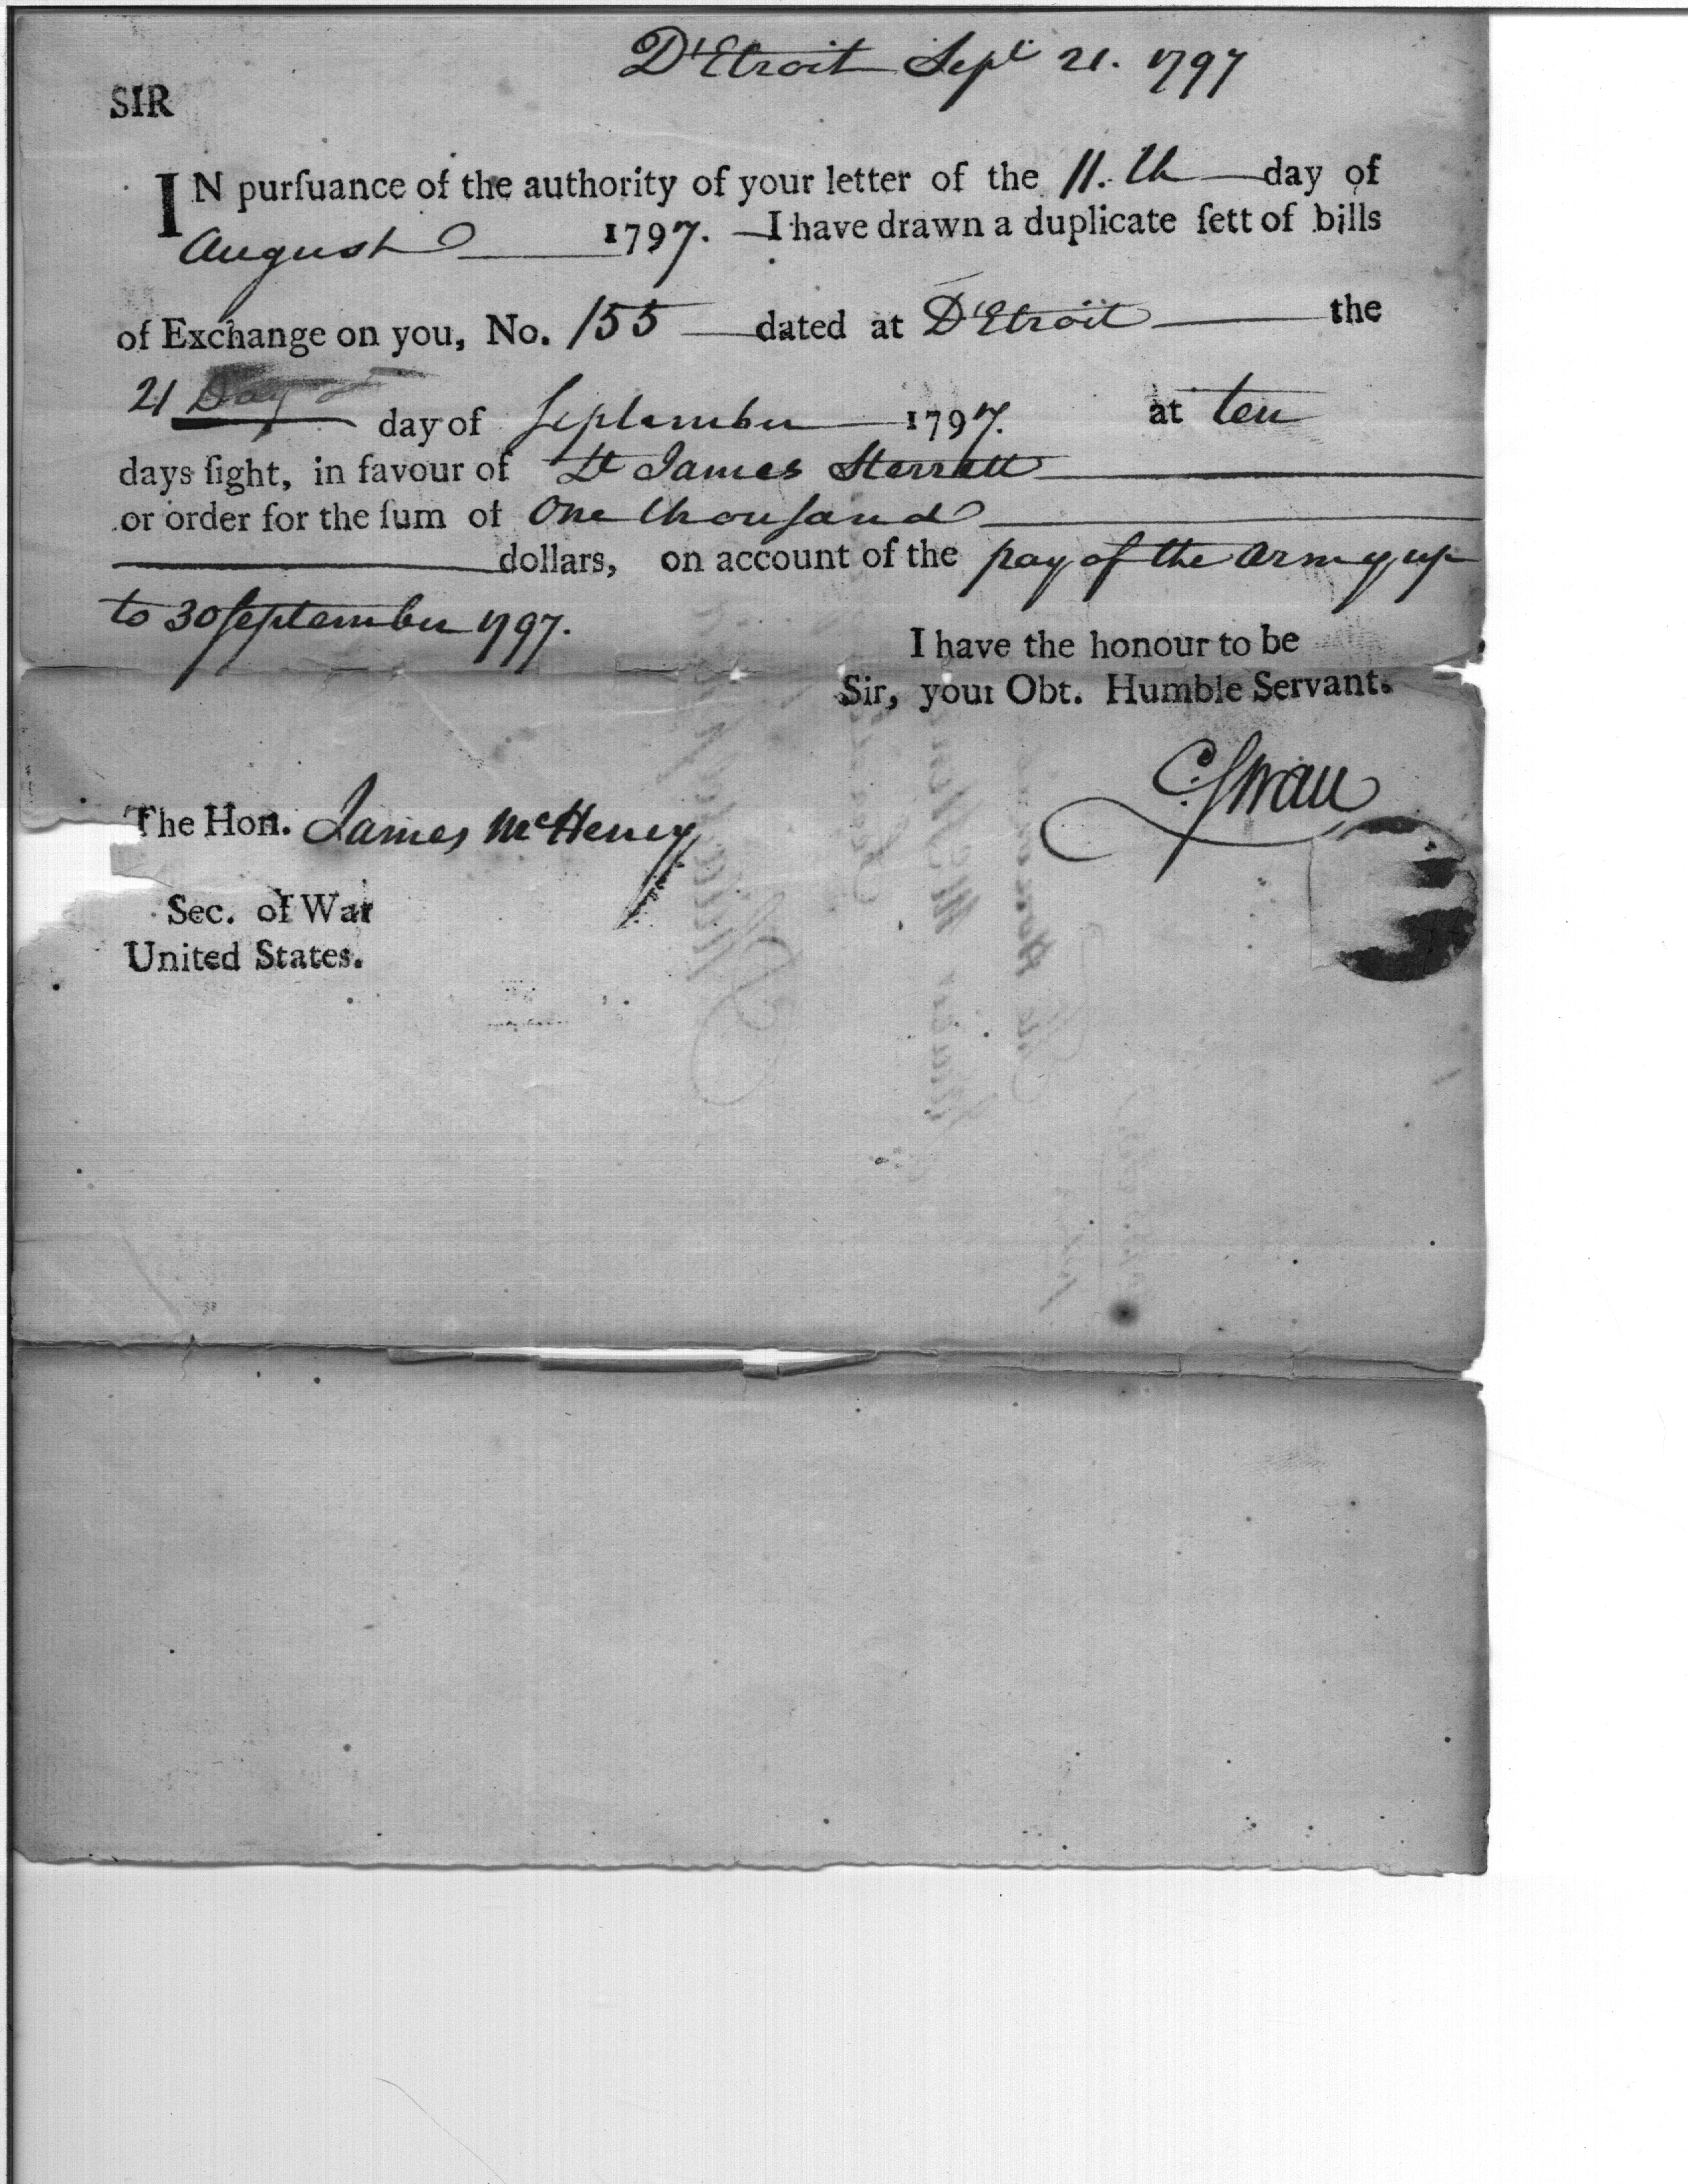 D'Etroit Sept 21. 1797
SIR
IN purſuance of the authority of your letter of the 11.th day of
August 1797. I have drawn a duplicate ſett of bills
of Exchange on you, No. 155 dated at D'Etroit the
21 Day day of September 1797. at ten
days ſight, in favour of Lt James Sterrett
or order for the ſum of One thouſand
dollars, on account of the pay of the army up
to 30 September 1797.
I have the honour to be
Sir, your Obt. Humble Servant.
C. Swan
The Hon. James McHenry
Sec. of War
United States.